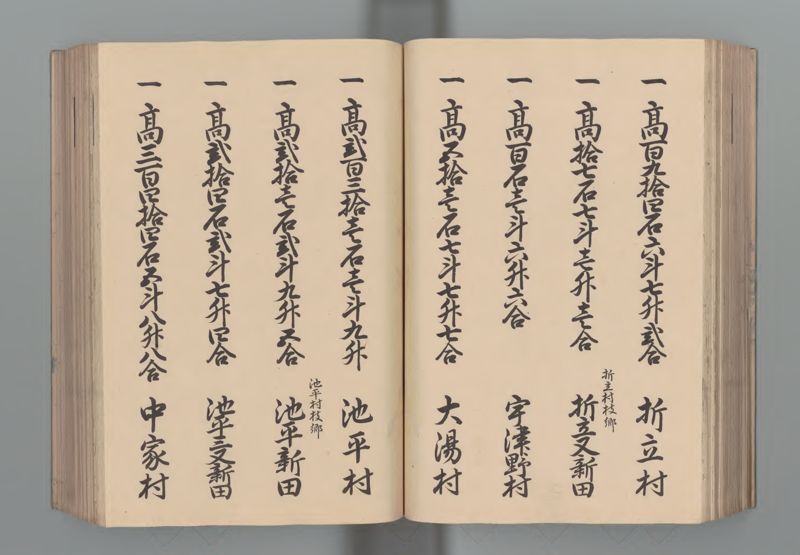 一高百九拾四石六斗七升弐合 折立村
折立村枝郷
一高拾七石七斗壱升壱合 折立又新田
一高百石壱斗六升六合 宇津野村
一高五拾壱石七斗七升七合 大湯村
一高弐百三拾壱石壱斗九升 池平村
池平村枝郷
一高弐拾壱石弐斗九升五合 池平新田
一高弐拾四石弐斗七升四合 池平又新田
一高三百四拾四石五斗八升八合 中家村